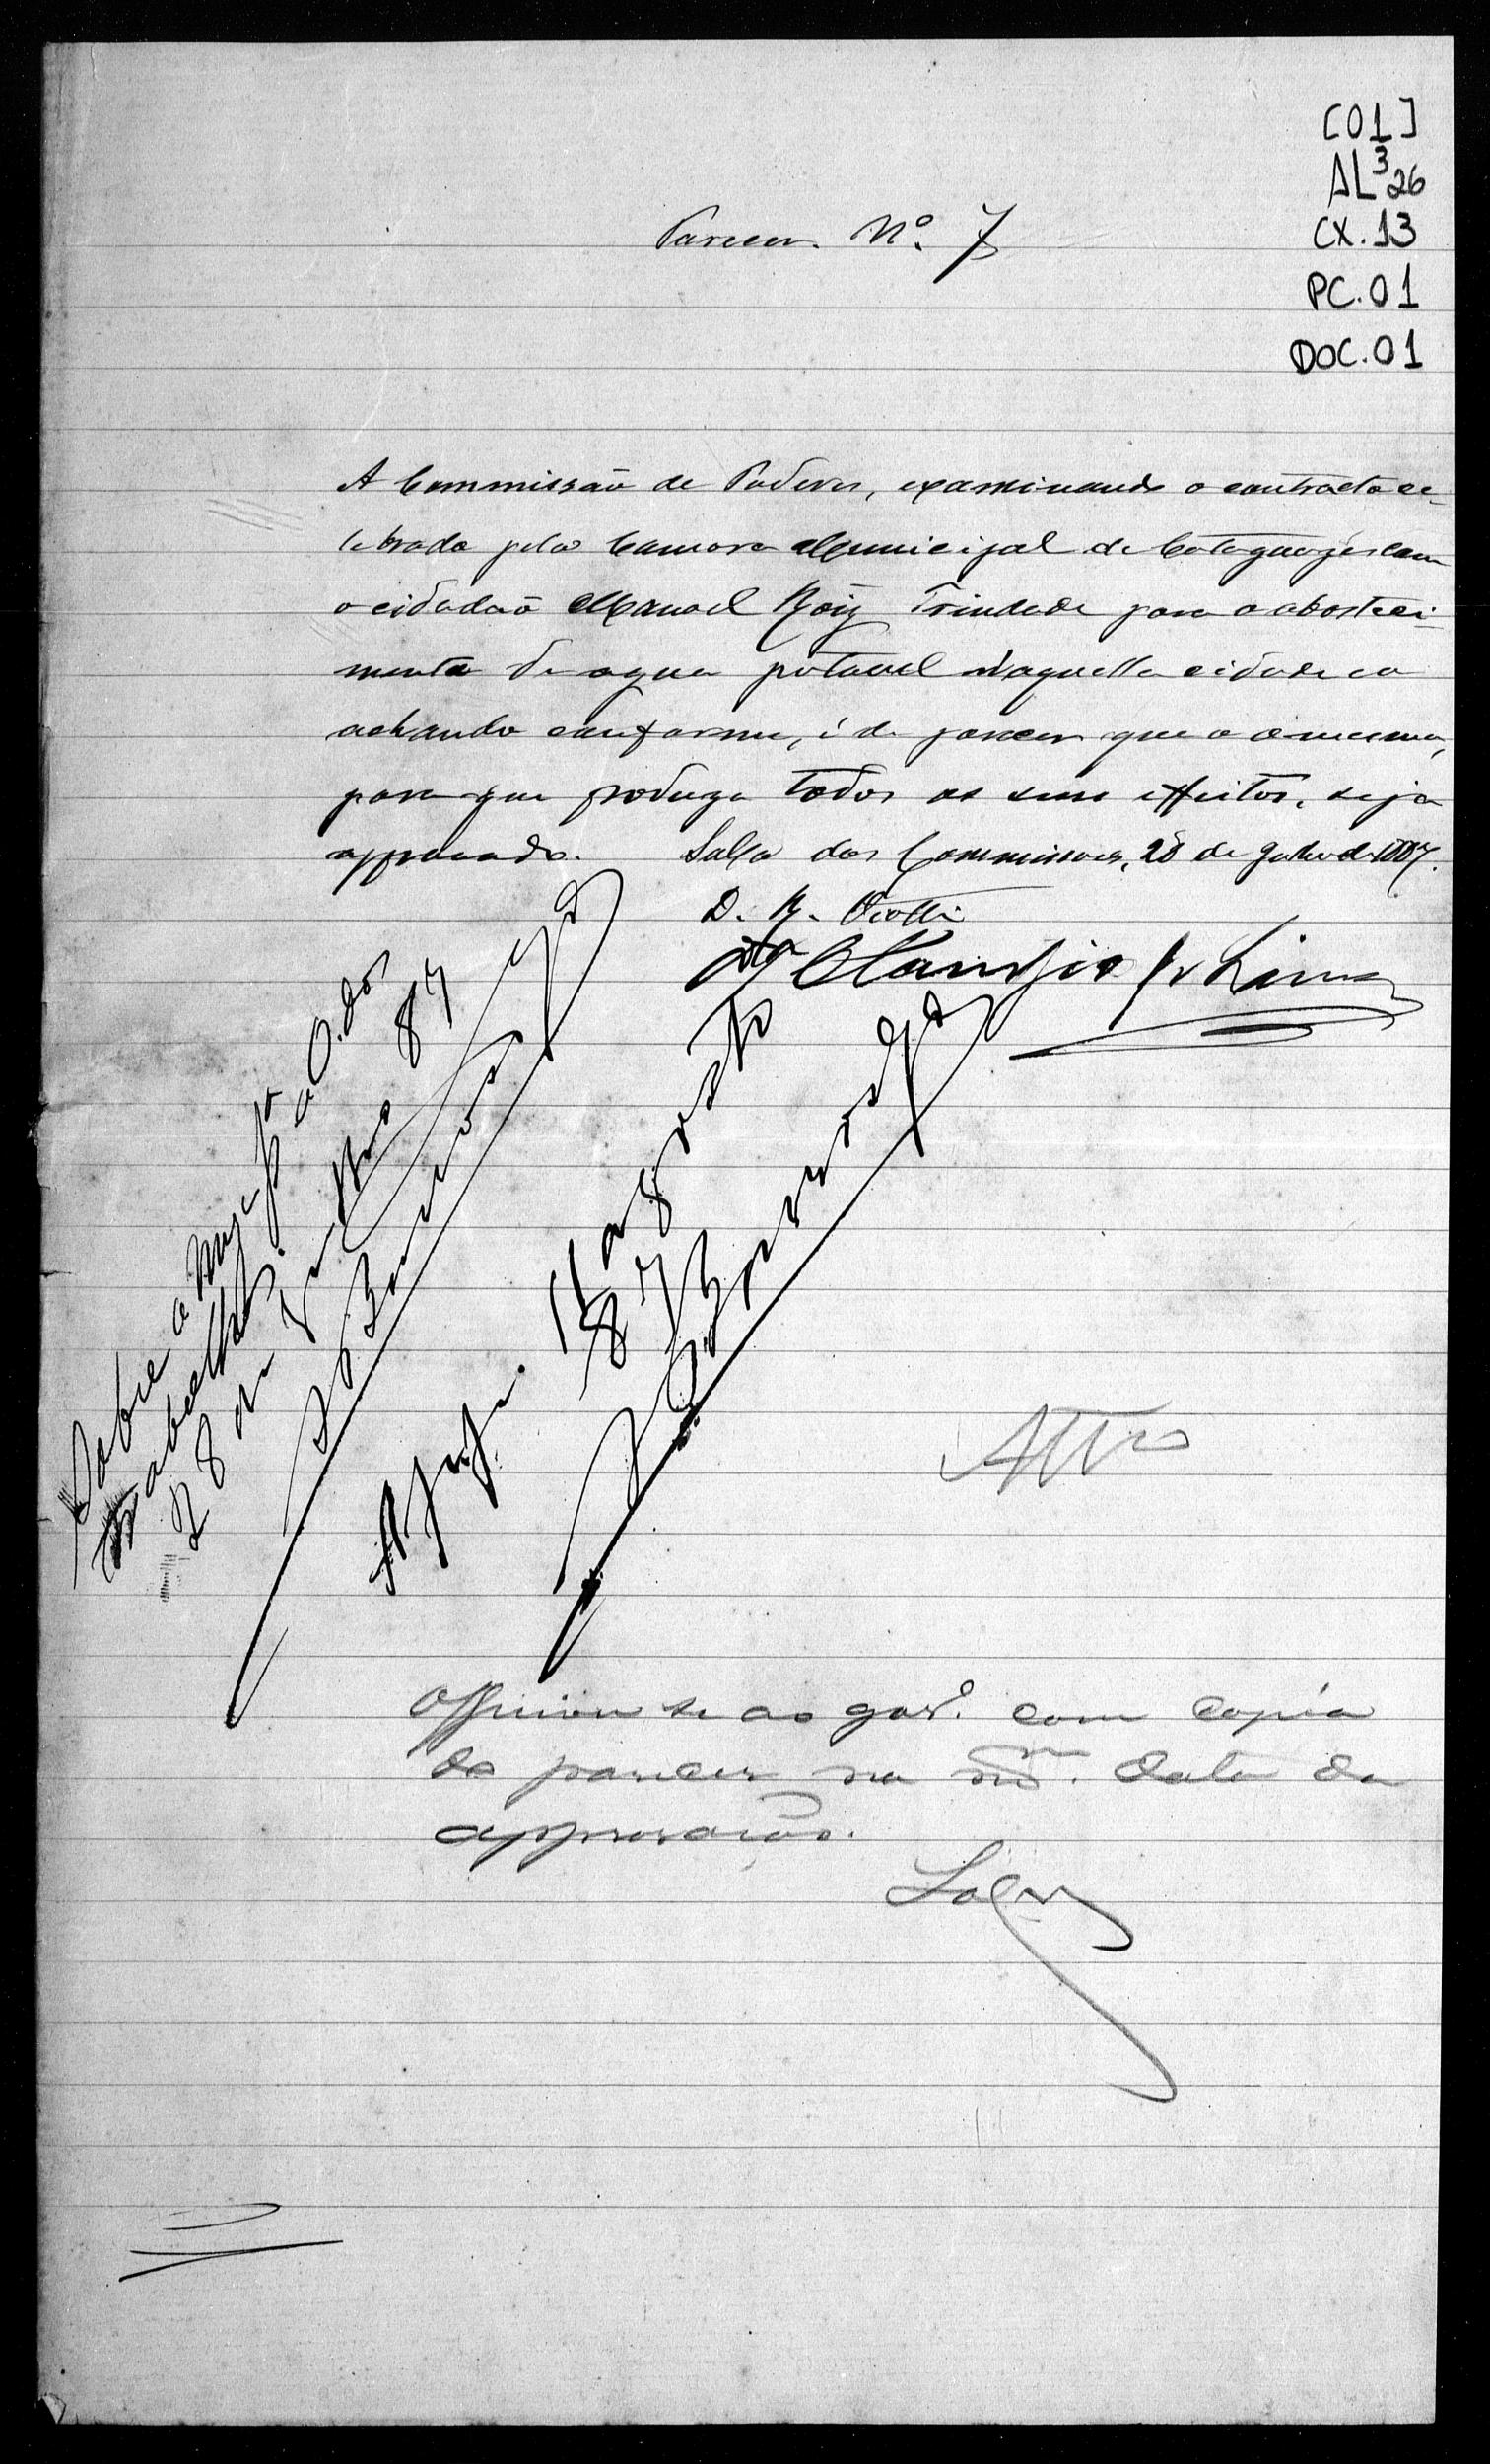 [01]
AL³26
CX.13
PC.01
DOC.01
Parecer. Nº. 7
A Commissão de Poderes, examinando o contracto ce-
lebrado pela Camara Municipal de Cataguazes com
o cidadão Manoel Roiz Trindade para o abasteci-
mento de agua potavel naquella cidade e o
achando conforme, é de parecer que o mesmo,
para que produza todos os seus effeitos, seja
approvado. Sala das Commissoes, 28 de Julho de 1887.
D. R. Viotti
Claudio de Lima
Sobre a Mesa pª a O. dos
trabalhos.
28 de Julho 87
App. 11 agosto
87
Officiou se ao gov. com copia
do parecer na mma. data da
approvação.